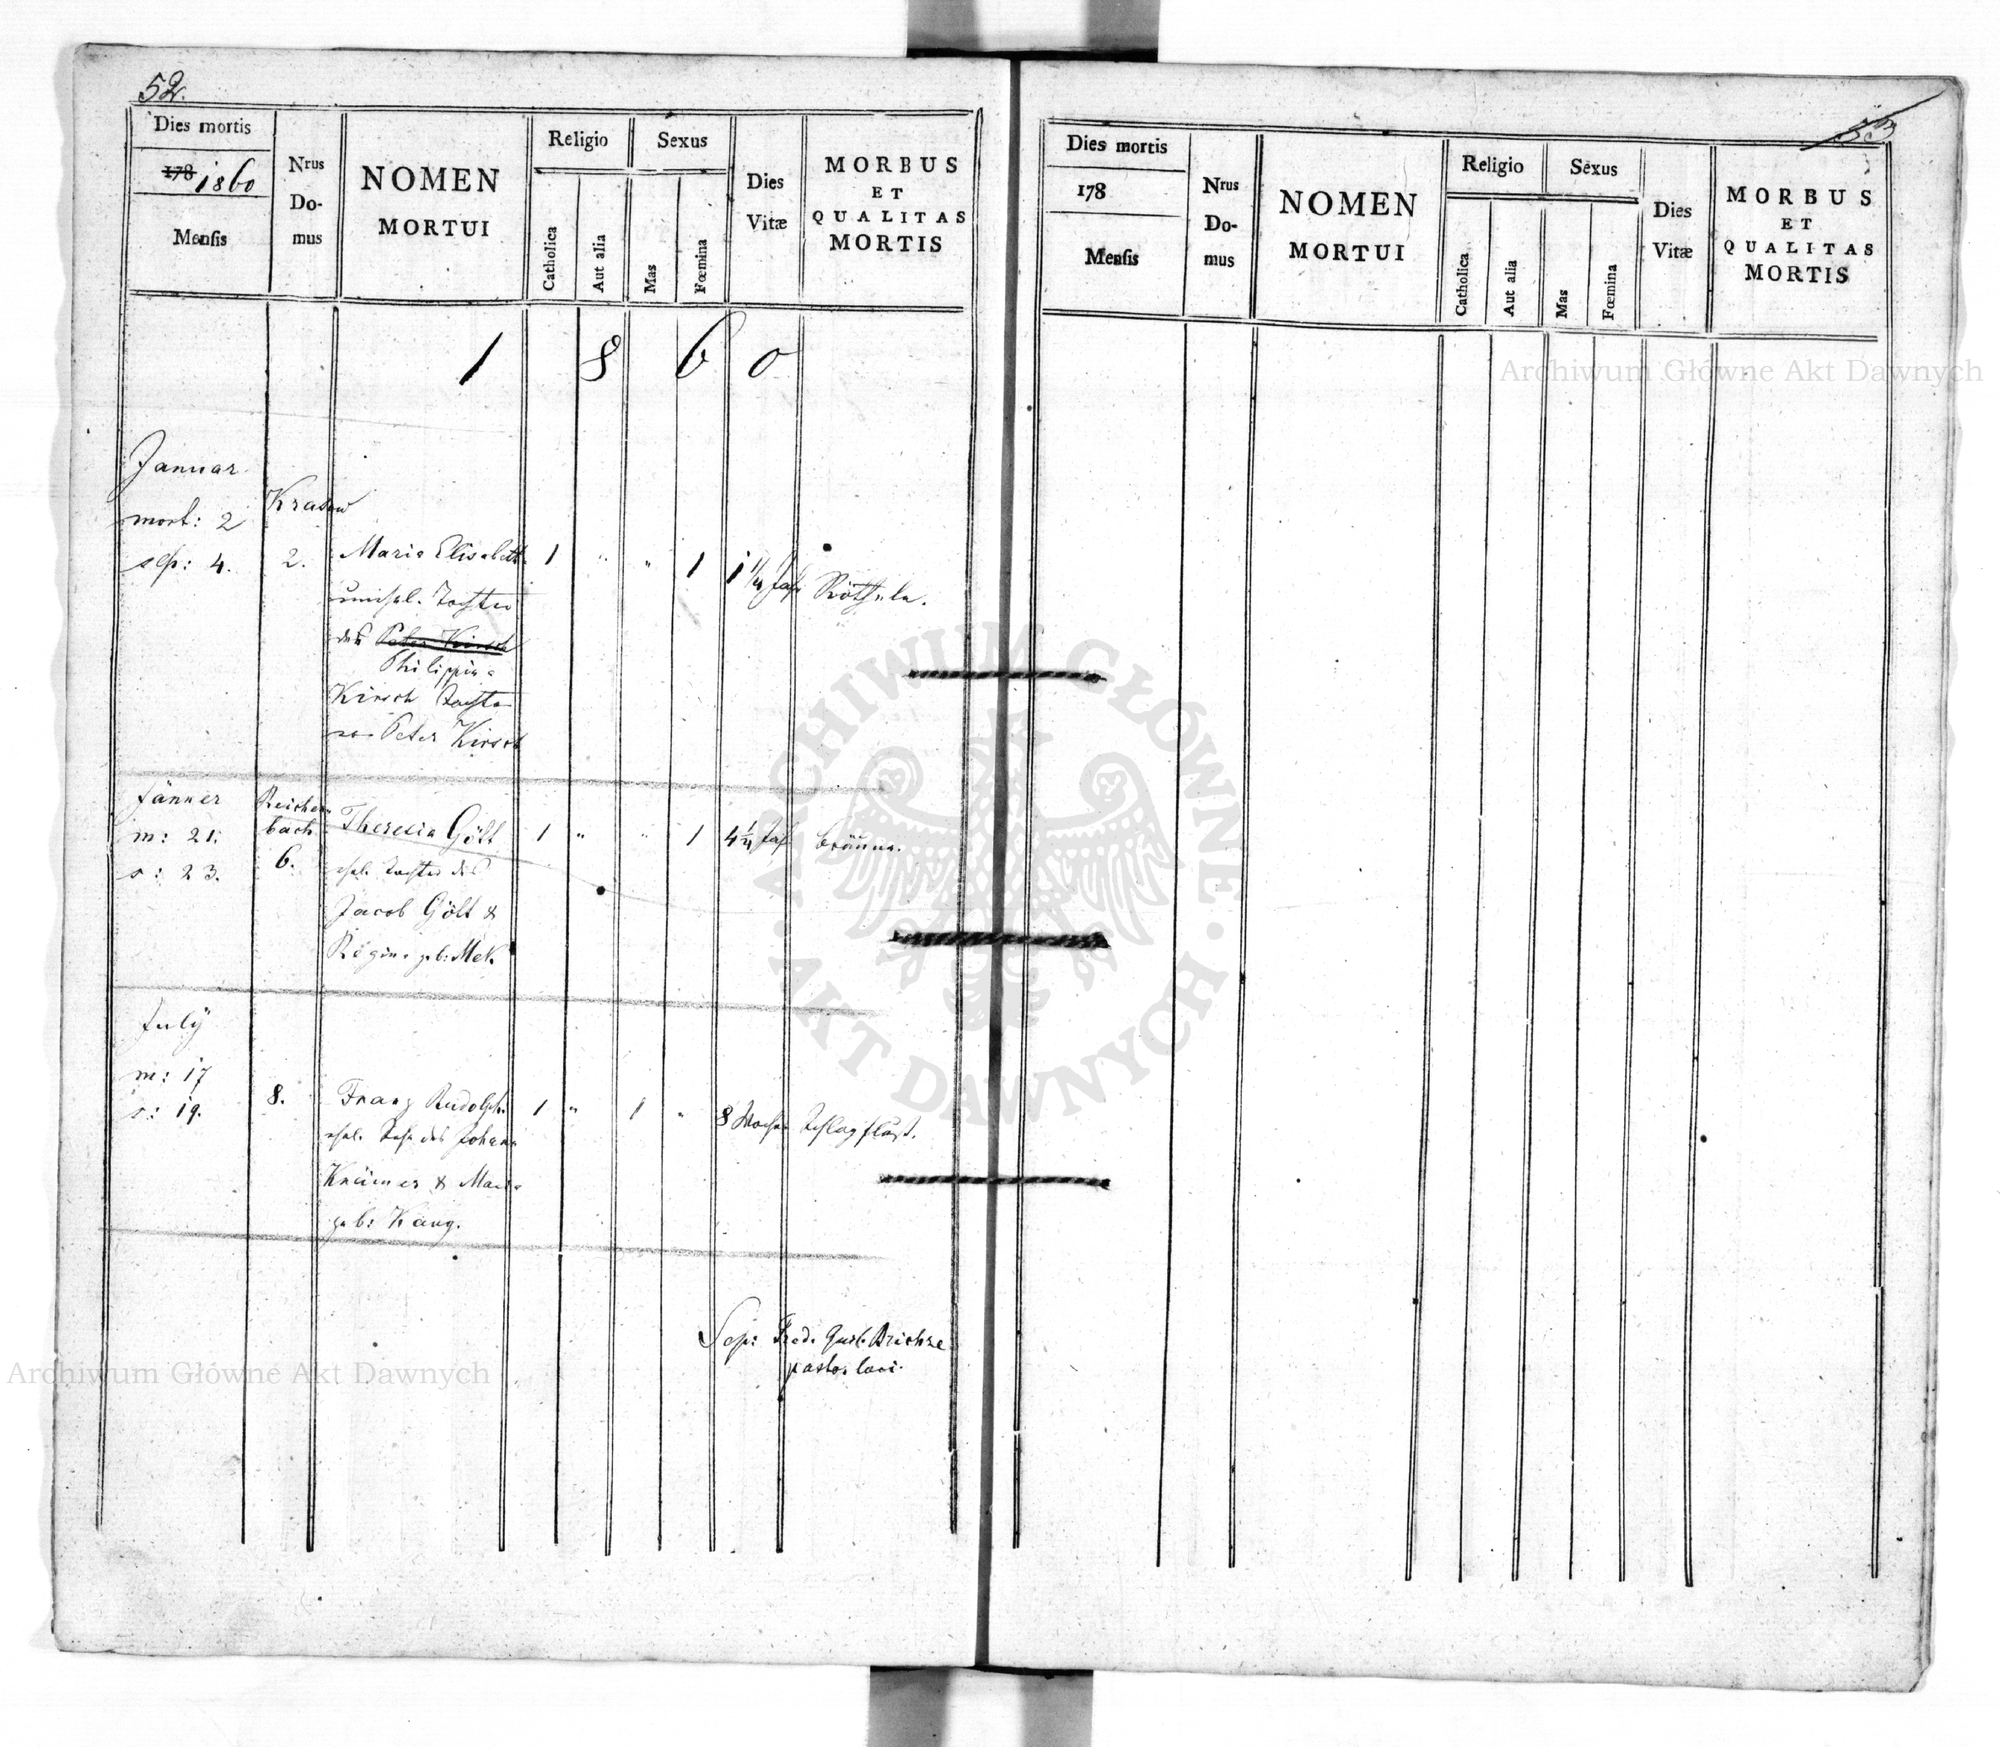 52.
Dies mortis
178 1860
Mensis
Nrus
Do-
mus
NOMEN
MORTUI
Religio
Catholica
Aut alia
Sexus
Mas
Fœmina
Dies
Vitæ
MORBUS
ET
QUALITAS
MORTIS
1 8 6 0
Januar
mort: 2
sep: 4.
Krasow
2.
Maria Elisabeth
unehel. Tochter
des Peter Kirsch
Philippina
Kirsch Tochter
Peter Kirsch
1 " " 1 1 1/4 Jahr Rötheln.
Jänner
m: 21.
s: 23.
Reichen
bach
6.
Theresia Gölt
ehel. Tochter des
Jacob Gölt &
Regina geb: Mek.
1 " " 1 4 1/4 Jahr Bräune.
July
m: 17
s: 19.
8.
Franz Rudolph
ehel. Sohn des Johann
Krämer & Maria
geb: Kang.
1 " 1 " 8 Wochen Schlagfluß.
Sep: Fred. Gust.
pastor loci.
53
Dies mortis
178
Mensis
Nrus
Do-
mus
NOMEN
MORTUI
Religio
Catholica
Aut alia
Sexus
Mas
Fœmina
Dies
Vitæ
MORBUS
ET
QUALITAS
MORTIS
Archiwum Główne Akt Dawnych
ARCHIWUM GŁÓWNE
· AKT DAWNYCH ·
Archiwum Główne Akt Dawnych